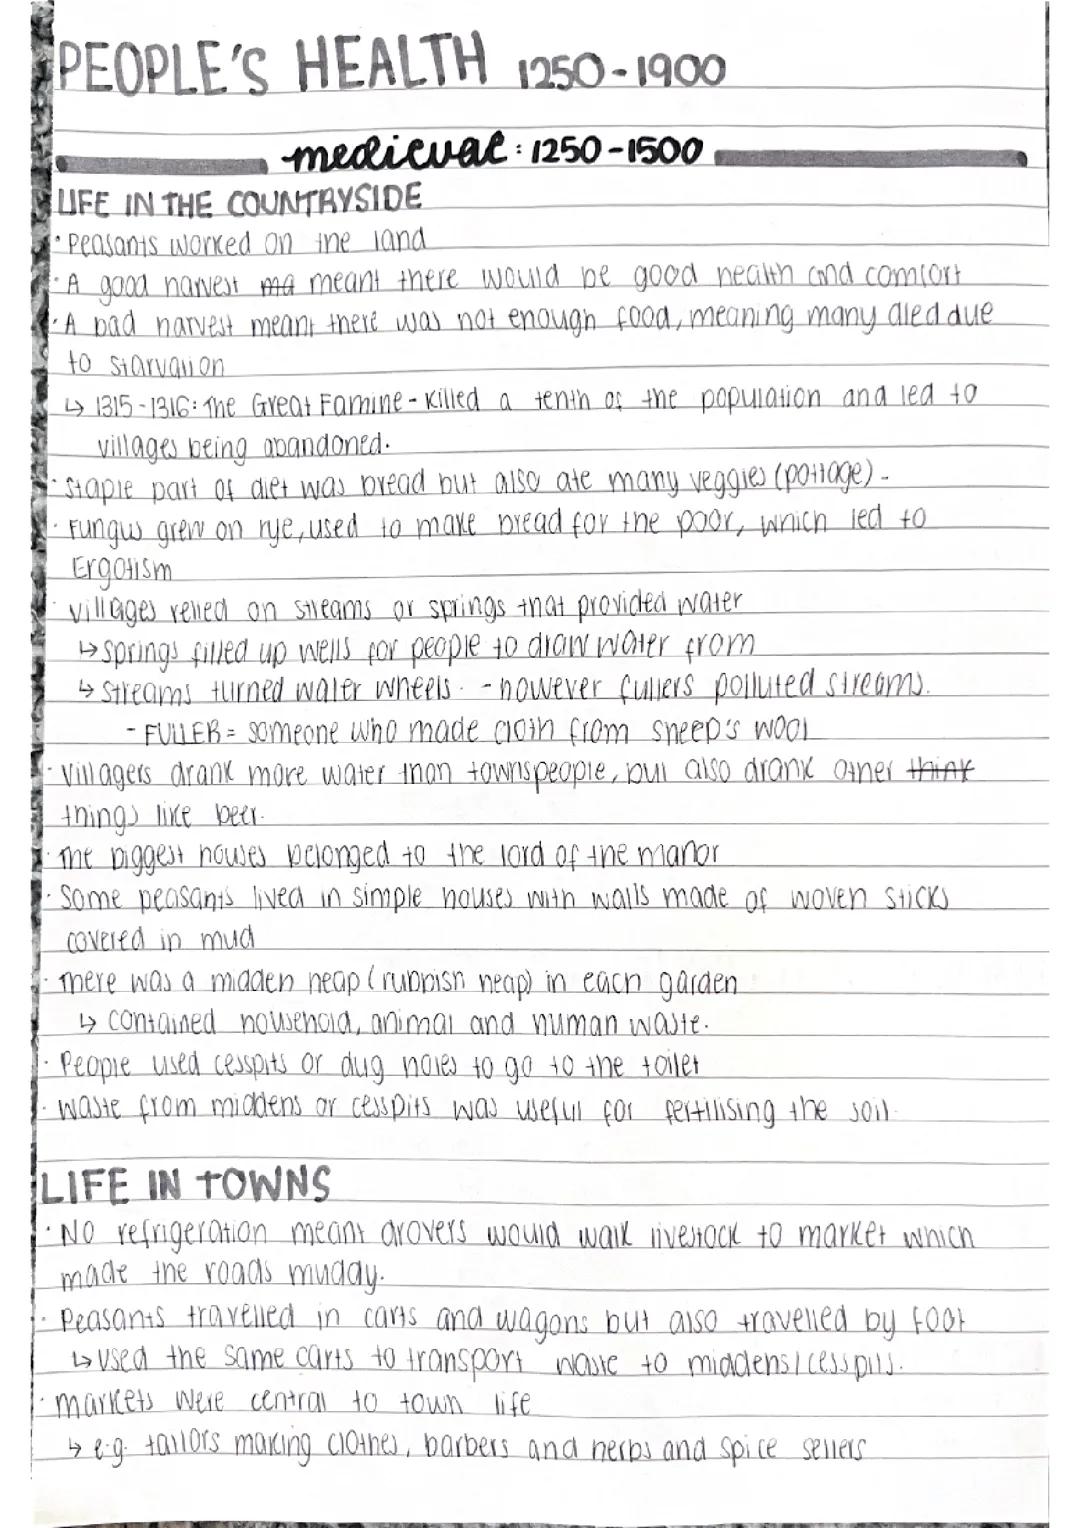 PEOPLE'S HEALTH 1250-1900
medieval: 1250-1500
LIFE IN THE COUNTRYSIDE
· Peasants worked on the land
· A good harvest ma meant there would be good health and comfort
· A bad harvest meant there was not enough food, meaning many died due
to starvation
↳ 1315-1316: The Great Famine - killed a tenth of the population and led to
villages being abandoned.
· Staple part of diet was bread but also ate many veggies (pottage) -
· Fungus grew on rye, used to make bread for the poor, which led to
Ergotism
· Villages relied on streams or springs that provided water
↳ Springs filled up wells for people to draw water from
↳ Streams turned water wheels. - however fullers polluted streams.
- FULLER = someone who made cloth from sheep's wool
· Villagers drank more water than townspeople, but also drank other think
things like beer.
· The biggest houses belonged to the lord of the manor
· Some peasants lived in simple houses with walls made of woven sticks
covered in mud
· There was a midden heap (rubbish heap) in each garden
↳ contained household, animal and human waste.
· People used cesspits or dug holes to go to the toilet
· Waste from middens or cesspits was useful for fertilising the soil.
LIFE IN TOWNS
· No refrigeration meant drovers would walk livestock to market which
made the roads muddy.
· Peasants travelled in carts and wagons but also travelled by foot
↳ used the same carts to transport waste to middens/cesspits.
· markets were central to town life
↳ e.g. tailors making clothes, barbers and herbs and spice sellers